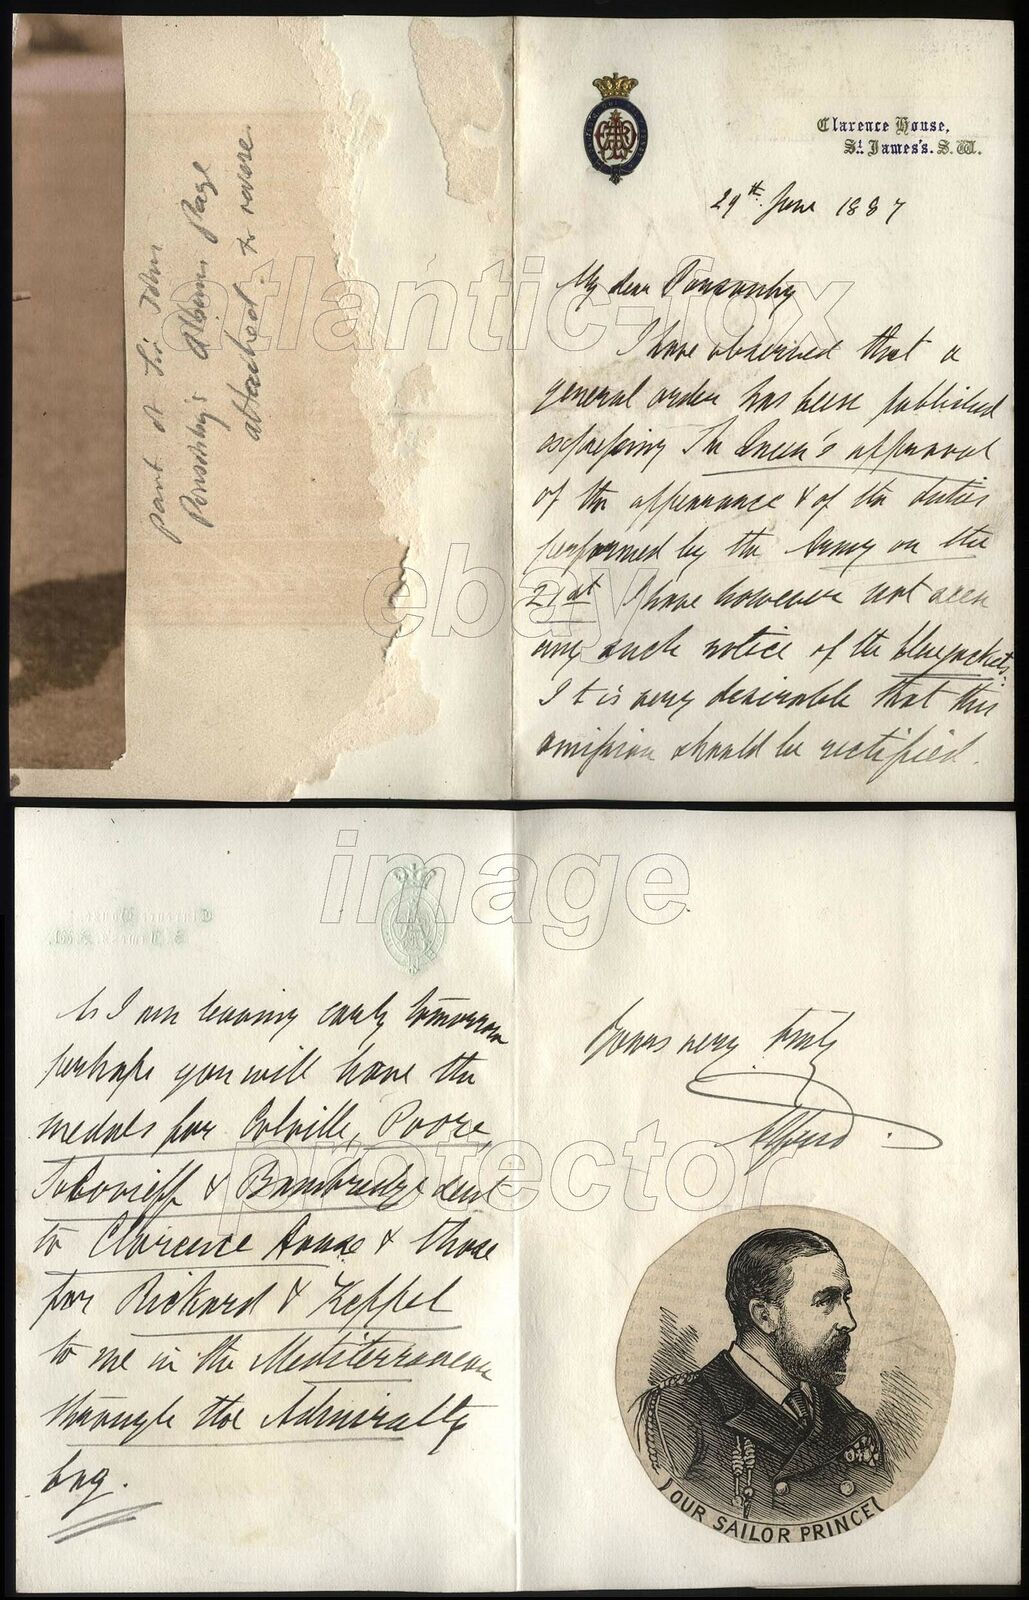 part of Sir John
Ponsonby's Album Page
attached to reverse
Clarence House,
St. James's. S.W.
29th June 1887
My dear Ponsonby
I have observed that a
general order has been published
expressing The Queen's approval
of the appearance & of the duties
performed by the Army on the
21st I have however not seen
any such notice of the bluejackets.
It is very desirable that this
omission should be rectified.
As I am leaving early tomorrow
perhaps you will have the
medals for Colville, Poore,
& Bambridge sent
to Clarence House & those
for Rickard & Keppel
to me in the Mediterranean
through the Admiralty
bag.
Yours very truly
Alfred
OUR SAILOR PRINCE
atlantic-fox
ebay
image
protector